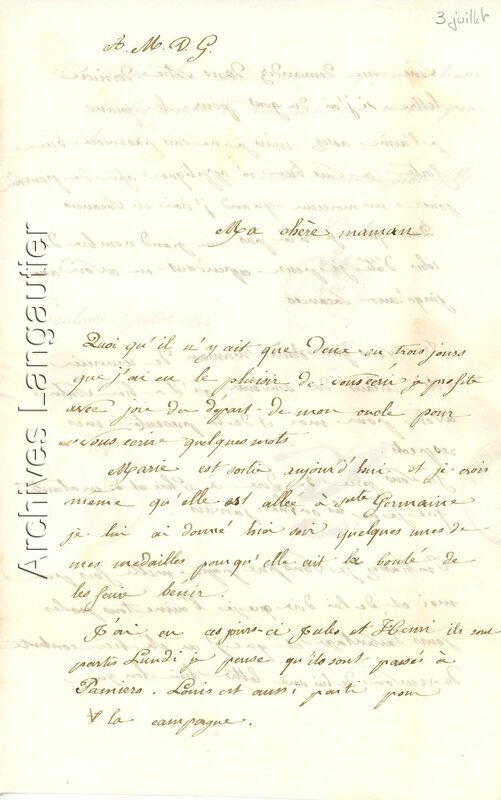 3 juillet
A. M. D. G.
Ma chère maman
Quoi qu'il n'y ait que deux ou trois jours
que j'ai eu le plaisir de vous écrire je profite
avec joie du départ de mon oncle pour
vous écrire quelques mots.
Marie est sortie aujourd'hui et je crois
même qu'elle est allée à Ste Germaine
je lui ai donné hier soir quelques unes de
mes medailles pour qu'elle ait la bonté de
les faire benir.
J'ai eu ces jours-ci Jules et Henri ils sont
partis Lundi je pense qu'ils sont passés à
Pamiers. Louis est aussi parti pour
la campagne.
Archives Langautier